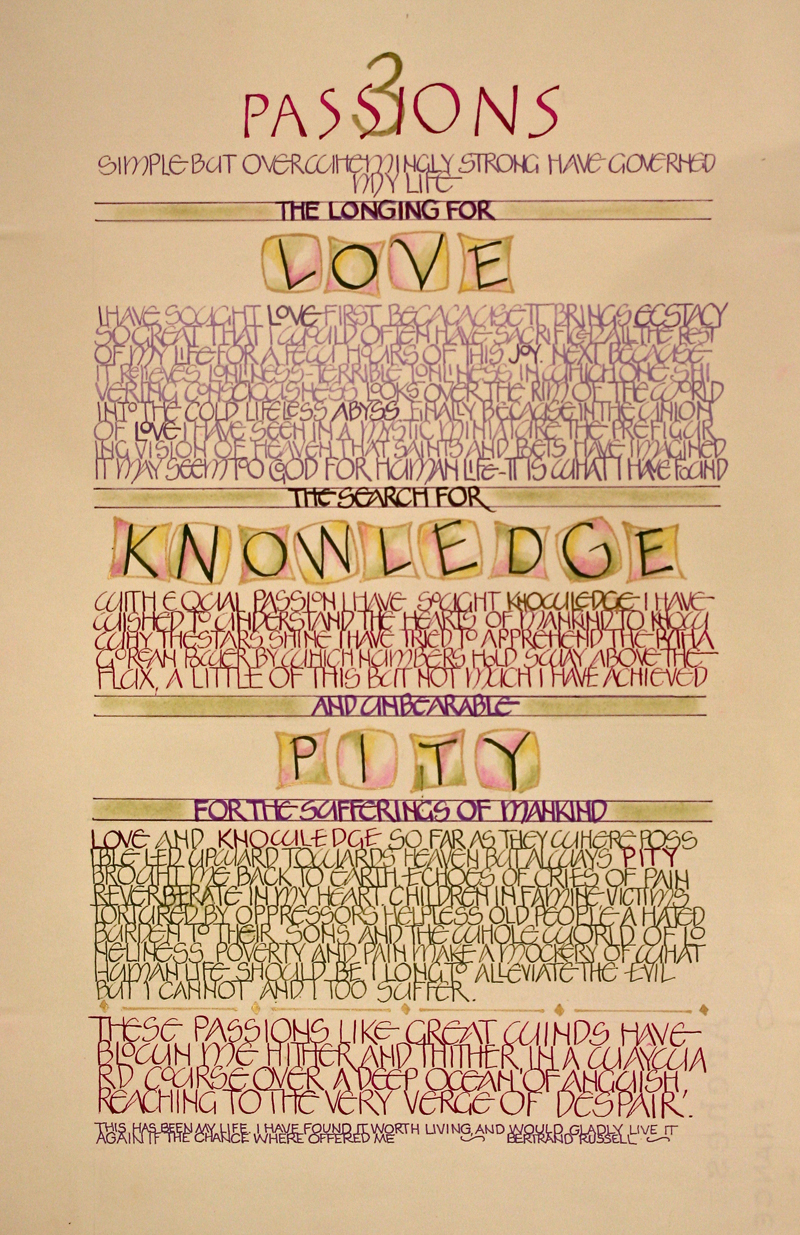 3
PASSIONS
SIMPLE BUT OVERWHEMINGLY STRONG HAVE GOVERNED
MY LIFE
THE LONGING FOR
LOVE
I HAVE SOUGHT LOVE FIRST BECACAUSE IT BRINGS ECSTACY
SO GREAT THAT I WOULD OFTEN HAVE SACRIFICED ALL THE REST
OF MY LIFE FOR A FEW HOURS OF THIS JOY. NEXT BECAUSE
IT RELIEVES LONLINESS-TERRIBLE LONLINESS IN WHICH ONE SHI
VERING CONSCIOUSNESS LOOKS OVER THE RIM OF THE WORLD
INTO THE COLD LIFELESS ABYSS. FINALLY BECAUSE IN THE UNION
OF LOVE I HAVE SEEN IN A MYSTIC MINIATURE THE PREFIGUR
ING VISION OF HEAVEN THAT SAINTS AND POETS HAVE IMAGINED
IT MAY SEEM TOO GOD FOR HUMAN LIFE-IT IS WHAT I HAVE FOUND
THE SEARCH FOR
KNOWLEDGE
WITH EQUAL PASSION I HAVE SOUGHT KNOWLEDGE I HAVE
WISHED TO UNDERSTAND THE HEARTS OF MANKIND TO KNOW
WHY THE STARS SHINE I HAVE TRIED TO APPREHEND THE PYTHA
GOREAN POWER BY WHICH NUMBERS HOLD SWAY ABOVE THE
FLUX, A LITTLE OF THIS BUT NOT MUCH I HAVE ACHIEVED
AND UNBEARABLE
PITY
FOR THE SUFFERINGS OF MANKIND
LOVE AND KNOWLEDGE SO FAR AS THEY WHERE POSS
IBLE LED UPWARD TOWARDS HEAVEN BUT ALWAYS PITY
BROUGHT ME BACK TO EARTH. ECHOES OF CRIES OF PAIN
REVERBERATE IN MY HEART. CHILDREN IN FAMINE VICTIMS
TORTURED BY OPPRESSORS HELPLESS OLD PEOPLE A HATED
BURDEN TO THEIR SONS AND THE WHOLE WORLD OF LO
NELINESS POVERTY AND PAIN MAKE A MOCKERY OF WHAT
HUMAN LIFE SHOULD BE I LONG TO ALLEVIATE THE EVIL
BUT I CANNOT AND I TOO SUFFER.
THESE PASSIONS LIKE GREAT WINDS HAVE
BLOWN ME HITHER AND THITHER IN A WAYWA
RD COURSE OVER A DEEP OCEAN OF ANGUISH,
REACHING TO THE VERY VERGE OF DESPAIR.
THIS HAS BEEN MY LIFE. I HAVE FOUND IT WORTH LIVING, AND WOULD GLADLY LIVE IT
AGAIN IF THE CHANCE WHERE OFFERED ME BERTRAND RUSSELL